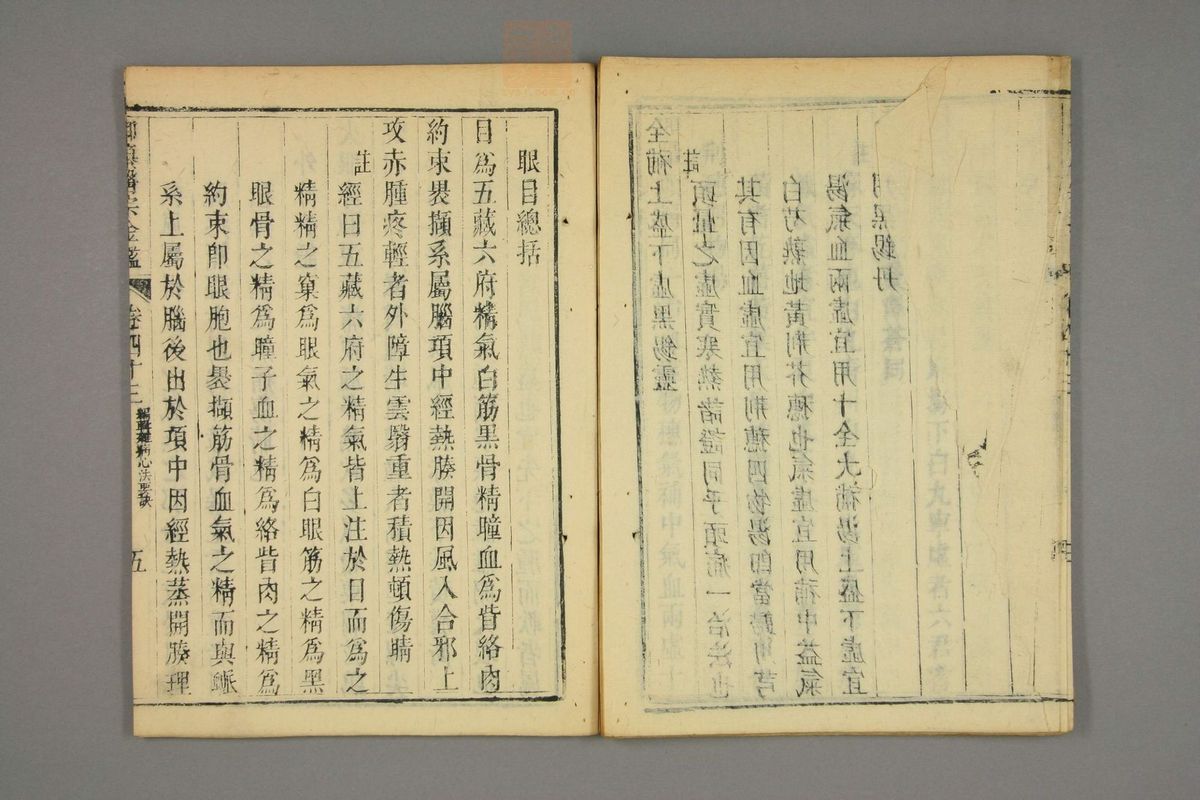 全補上盛下虛黑錫靈
註
頭暈之虛實寒熱諸證同乎頭痛一治法也
其有因血虛宜用荊穗四物湯卽當歸川芎
白芍熟地黃荊芥穗也氣虛宜用補中益氣
湯氣血兩虛宜用十全大補湯上盛下虛宜
用黑錫丹
眼目總括
目爲五藏六府精氣白筋黑骨精瞳血爲眥絡肉
約束裹擷系屬腦項中經熱腠開因風入合邪上
攻赤腫疼輕者外障生雲翳重者積熱頓傷睛
註
經曰五藏六府之精氣皆上注於目而爲之
精精之窠爲眼氣之精爲白眼筋之精爲黑
眼骨之精爲瞳子血之精爲絡眥肉之精爲
約束卽眼胞也裹擷筋骨血氣之精而與脈
系上屬於腦後出於項中因經熱蒸開腠理
御纂醫宗金鑑 卷四十三 編輯雜病心法要訣 五